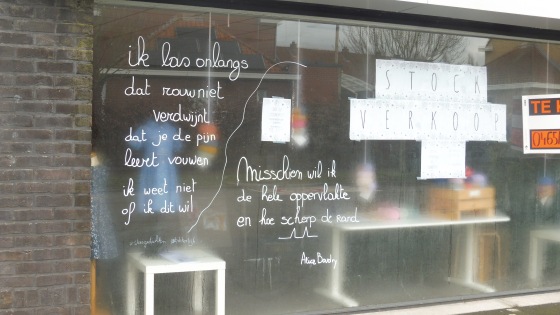 ik las onlangs
dat rouw niet
verdwijnt
dat je de pijn
leert vouwen
ik weet niet
of ik dit wil
Misschien wil ik
de hele oppervlakte
en hoe scherp de rand
STOCK
VERKOOP
TE